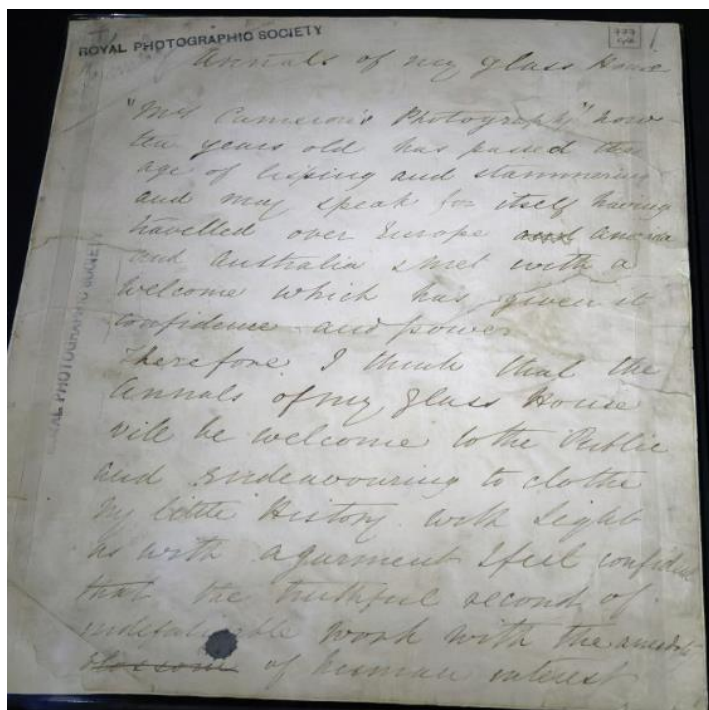 ROYAL PHOTOGRAPHIC SOCIETY
333
Annals of my Glass House
"Mrs Cameron's Photography" now
ten years old has passed the
age of lisping and stammering
and may speak for itself having
travelled over Europe and America
and Australia & met with a
welcome which has given it
confidence and power
Therefore I think that the
Annals of my Glass House
will be welcome to the Public
and endeavouring to clothe
my little History with Light
as with a garment I feel confident
that the truthful record of
indefatigable work with the anecdote
blossom of human interest
ROYAL PHOTOGRAPHIC SOCIETY